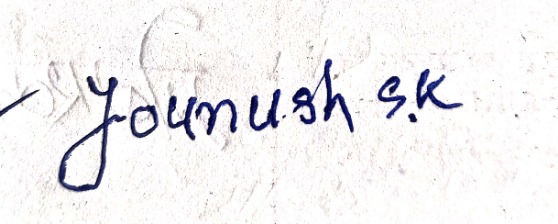 Younush S.K